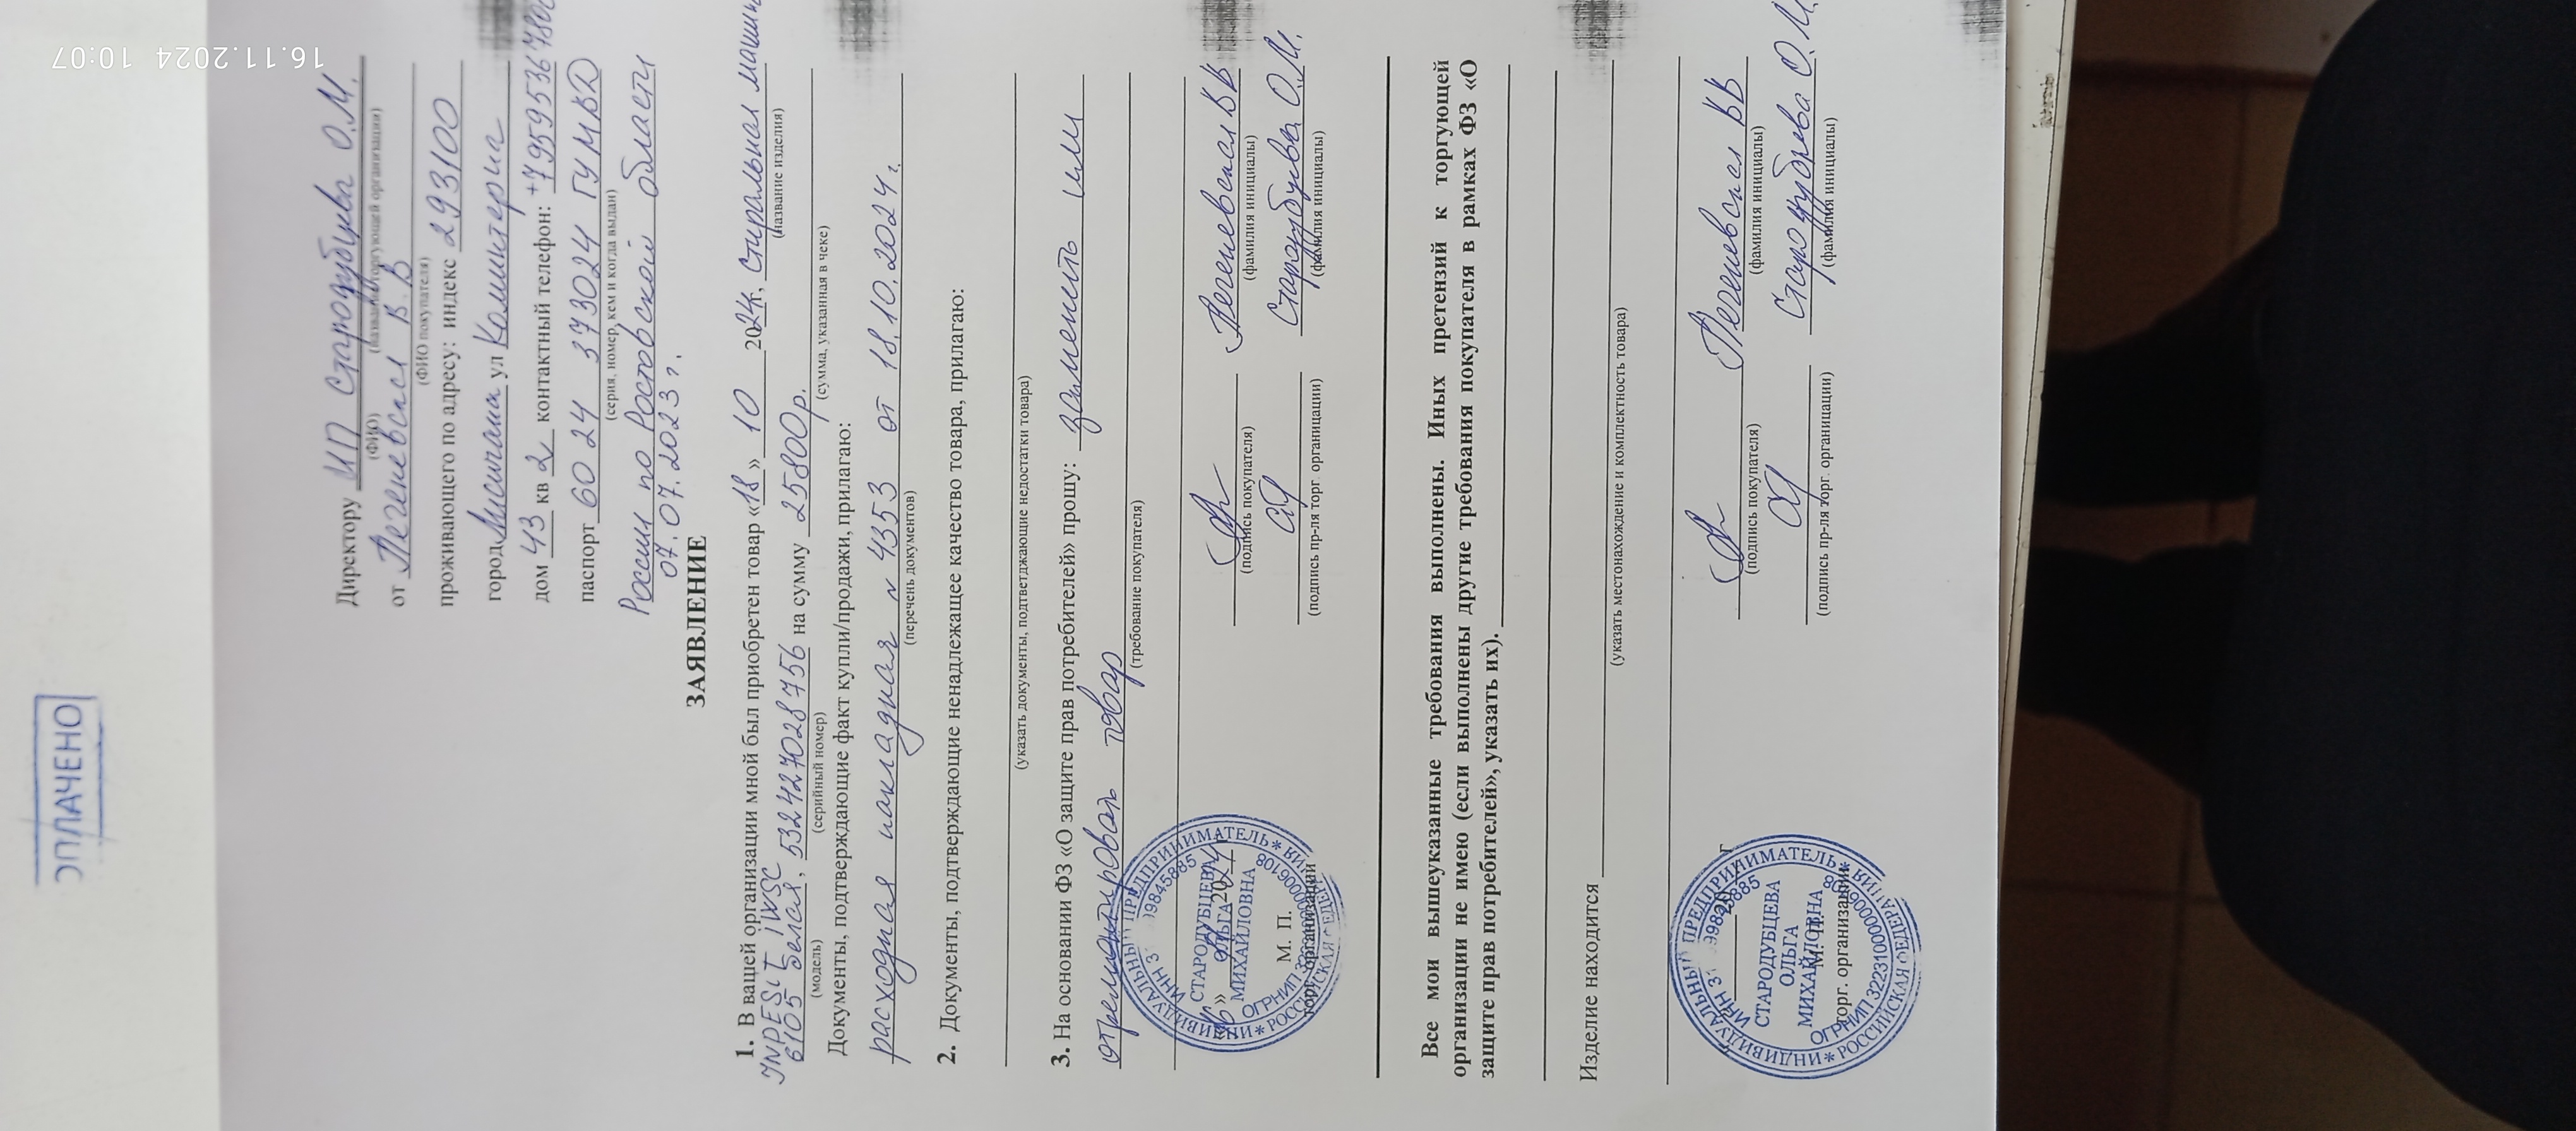 16.11.2024 10:07
ОПЛАЧЕНО
Директору ИП Стародубцева О.М.
(ФИО) (название торгующей организации)
от Легеневская В.В
(ФИО покупателя)
проживающего по адресу: индекс 293100
город Лисичанск ул Коминтерна
дом 43 кв 2 контактный телефон: +7959536780
паспорт 60 24 373024 ГУ МВД
(серия, номер, кем и когда выдан)
России по Ростовской области
07.07.2023 г.
ЗАЯВЛЕНИЕ
1. В вашей организации мной был приобретен товар «18» 10 2024г, Стиральная машина
(название изделия)
INDESIT IWSC
6105 белая, 532427028756 на сумму 25800р.
(модель) (серийный номер) (сумма, указанная в чеке)
Документы, подтверждающие факт купли/продажи, прилагаю:
расходная накладная № 4353 от 18.10.2024 г.
(перечень документов)
2. Документы, подтверждающие ненадлежащее качество товара, прилагаю:
(указать документы, подтветджающие недостатки товара)
3. На основании ФЗ «О защите прав потребителей» прошу: заменить или
отремонтировать товар
(требование покупателя)
Легеневская ВВ
(подпись покупателя) (фамилия инициалы)
Стародубцева О.М.
(подпись пр-ля торг. органицации) (фамилия инициалы)
«16» 2024
М. П.
торг. организации
ИНДИВИДУАЛЬНЫЙ ПРЕДПРИНИМАТЕЛЬ * РОССИЙСКАЯ ФЕДЕРАЦИЯ *
СТАРОДУБЦЕВА
ОЛЬГА
МИХАЙЛОВНА
Все мои вышеуказанные требования выполнены. Иных претензий к торгующей
организации не имею (если выполнены другие требования покупателя в рамках ФЗ «О
защите прав потребителей», указать их).
Изделие находится
(указать местонахождение и комплектность товара)
Легеневская ВВ
(подпись покупателя) (фамилия инициалы)
Стародубцева О.М.
(подпись пр-ля торг. органицации) (фамилия инициалы)
М. П.
торг. организации
ИНДИВИДУАЛЬНЫЙ ПРЕДПРИНИМАТЕЛЬ * РОССИЙСКАЯ ФЕДЕРАЦИЯ *
СТАРОДУБЦЕВА
ОЛЬГА
МИХАЙЛОВНА